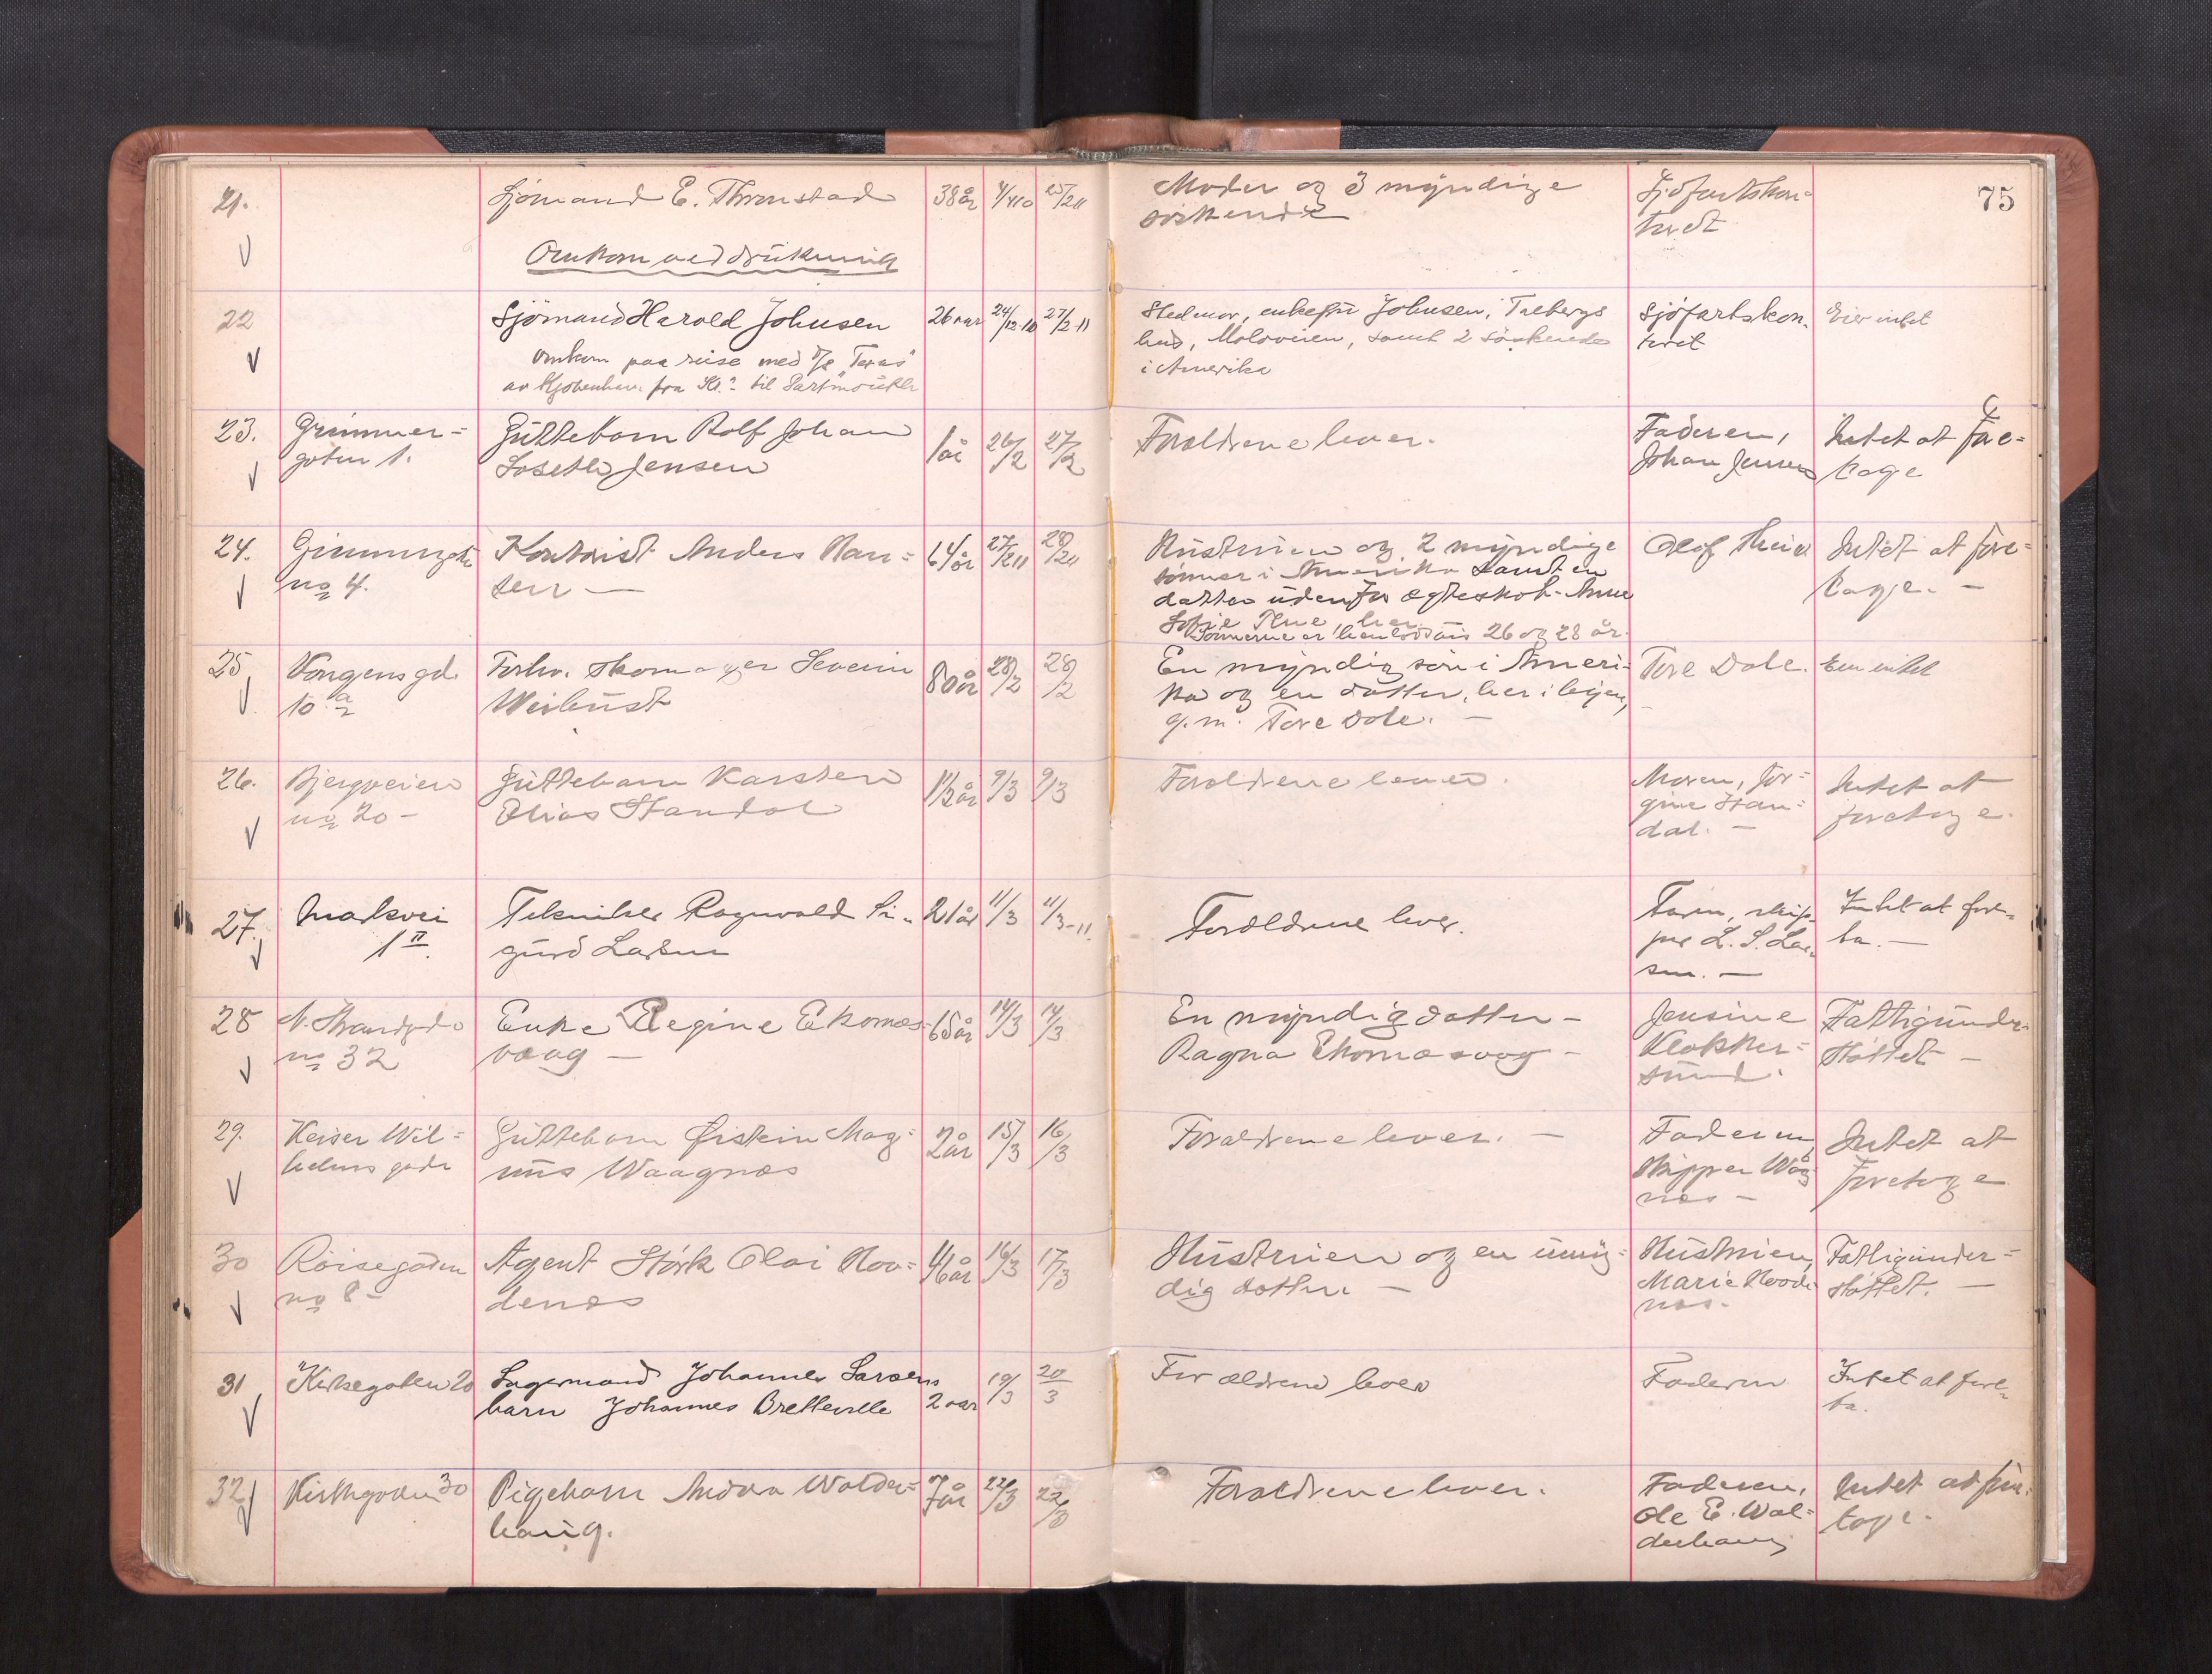 75
21.
Sjømand E. Thronstad
38 år
4/4 10
25/2 11
Moder og 3 myndige
søskende
Sjøfartskon=
toret
Omkom ved drukning
22
Sjömand Harold Johnsen
26 aar
24/12.10
27/2-11
Stedmor, enkefru Johnsen, Talbergs
hus, Moloveien, samt 2 söskende
i Amerika
Sjöfartskon.
toret
Eier intet
omkom paa reise med
av Kjøbenhavn fra til
23.
Grimmer=
gaten 1.
Guttebarn Rolf Johan
Losethe Jensen
1 år
26/2
27/2
Forældrene lever.
Faderen,
Johan Jensen
Intet at fore=
tage
24.
Grimmergt
no 4.
Kontorist Anders Han=
sen —
64 år
27/2 11
28/2 11
Hustruen og 2 myndige
sønner i Amerika samt en
datter udenfor ægteskab. Anne
Sofie Thue, her.
Sønnerne er henholdsvis 26 og 28 år.
Olof Theie
Intet at fore=
tage. —
25
Kongensgd.
10 a
Forhv. skomager Severin
Weibust
80 år
28/2
28/2
En myndig søn i Ameri=
ka og en datter, her i byen,
g. m. Tore Dale. —
Tore Dale.
Eier intet
26.
Bjergveien
no 20 —
Guttebarn Karsten
Elias Standal
1½ år
9/3
9/3
Forældrene lever.
Moren, Jør=
gine Stan=
dal. —
Intet at
foretage.
27.
Marksvei
1 II.
Tekniker Ragnvald Si=
gurd Larsen
21 år
11/3
11/3-11.
Forældrene lever.
Faren, skip-
per L. S. Lar-
sen. —
Intet at fore-
ta. —
28
N. Strandgd.
no 32
Enke Regine Ekornes=
vaag —
65 år
14/3
14/3
En myndig datter —
Ragna Ekornesvaag —
Jensine
Klokker=
sund.
Fattigunder-
støttet —
29.
Keiser Wil=
helms gade
Guttebarn Øistein Mag=
nus Waagnæs
2 år
15/3
16/3
Forældrene lever. —
Faderen,
Skipper Wåg
næs —
Intet at
foretage
30
Røisegaden
no 8 —
Agent Stórk Olai Noo=
denes
46 år
16/3
17/3
Hustruen og en umyn=
dig datter. —
Hustruen,
Marie Noode
næs.
Fattigunder=
støttet. —
31
Kirkegaten 20
Lagermand Johannes Larsens
barn Johannes Bretteville
2 aar
19/3
20/3
Forældrene lever
Faderen
Intet at fore-
ta.
32
Kirkegaden 30
Pigebarn Andrea Walder=
haug.
7 år
22/3
22/3
Forældrene lever.
Faderen,
Ole E. Wal=
derhaug
Intet at fore.
tage.